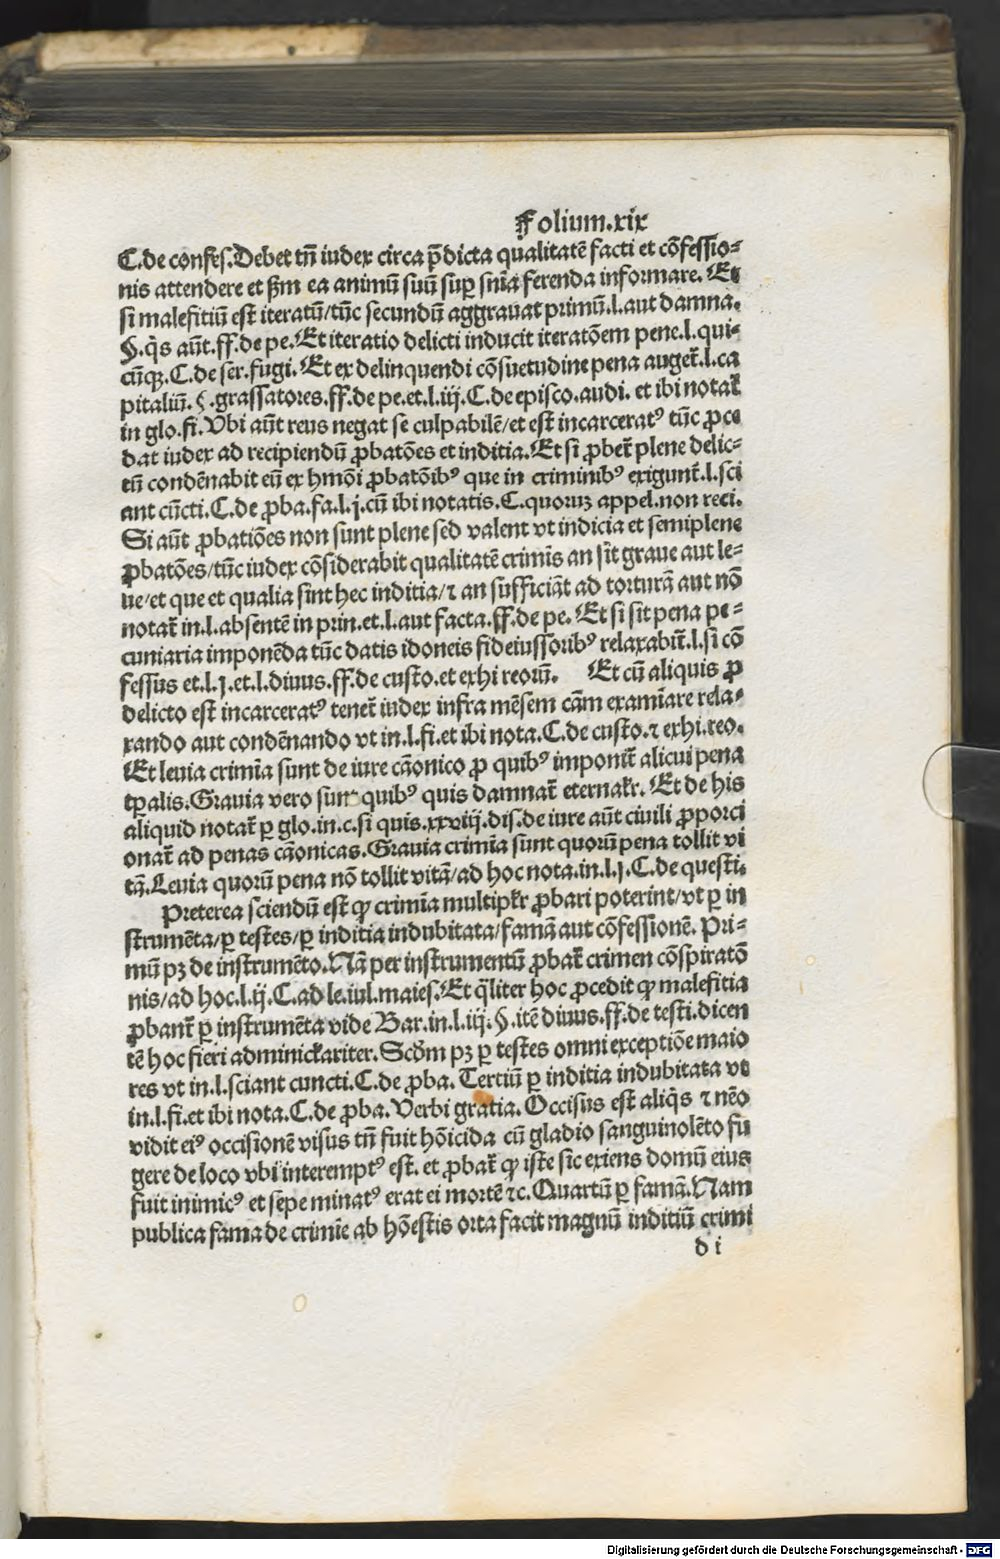 Folium.xix
C. de confes. Debet tn̄ iudex circa p̄dicta qualitatē facti et cōfessio⸗
nis attendere et ẜm ea animū suū suꝑ sn̄ia ferenda informare. Et
si malefitiū est iteratū/tūc secundū aggrauat primū.l.aut damna.
§.q̇s aūt.ff.de pe. Et iteratio delicti inducit iteratōem pene.l.qui⸗
cūqꝫ.C.de ser.fugi. Et ex delinquendi cōsuetudine pena auget᷑.l.ca
pitaliū.§.grassatores.ff.de pe.et.l.iij.C.de episco.audi. et ibi notat᷑
in glo.fi. Vbi aūt reus negat se culpabilē/et est incarceratꝰ tūc ꝓce
dat iudex ad recipiendū ꝓbatōes et inditia. Et si ꝓbet᷑ plene delic⸗
tū condēnabit eū ex hmōi ꝓbatōibꝰ que in criminibꝰ exigunt᷑.l.sci
ant cūcti.C.de ꝓba.fa.l.j.cū ibi notatis.C.quoruꝫ appel.non reci.
Si aūt ꝓbatiōes non sunt plene sed valent vt indicia et semiplene
ꝓbatōes/tūc iudex cōsiderabit qualitatē crimīs an sit graue aut le⸗
ue/et que et qualia sint hec inditia/⁊ an sufficiāt ad torturā aut nō
notat᷑ in.l.absentē in prin.et.l.aut facta.ff.de pe. Et si sit pena pe⸗
cuniaria imponēda tūc datis idoneis fideiussoribꝰ relaxabit᷑.l.si cō
fessus et.l.j.et.l.diuus.ff.de custo.et exhi reorū. Et cū aliquis ꝓ
delicto est incarceratꝰ tenet᷑ iudex infra mēsem cām examīare rela⸗
xando aut condēnando vt in.l.fi.et ibi nota.C.de custo.⁊ exhi.reo.
Et leuia crimīa sunt de iure cānonico ꝓ quibꝰ imponit᷑ alicui pena
tꝑalis. Grauia vero sunt quibꝰ quis damnat᷑ eternalr̄. Et de his
aliquid notat᷑ ꝑ glo.in.c.si quis.xxviij.dis.de iure aūt ciuili ꝓporci
onat᷑ ad penas cānonicas. Grauia crimīa sunt quorū pena tollit vi
tā. Leuia quorū pena nō tollit vitā/ad hoc nota.in.l.j.C.de questi.
Preterea sciendū est ꝙ crimīa multiplr̄ ꝓbari poterint/vt ꝑ in
strumēta/ꝑ testes/ꝑ inditia indubitata/famā aut cōfessionē. Pri⸗
mū pꝫ de instrumēto. Nā per instrumentū ꝓbat᷑ crimen cōspiratō
nis/ad hoc.l.ij.C.ad le.iul.maies. Et q̄liter hoc ꝓcedit ꝙ malefitia
ꝓbant᷑ ꝑ instrumēta vide Bar.in.l.iij.§.itē diuus.ff.de testi.dicen
tē hoc fieri adminiclariter. Scd̄m pꝫ ꝑ testes omni exceptiōe maio
res vt in.l.sciant cuncti.C.de ꝓba. Tertiū ꝑ inditia indubitata vt
in.l.fi.et ibi nota.C.de ꝓba. Verbi gratia. Occisus est aliq̇s ⁊ nēo
vidit eiꝰ occisionē visus tn̄ fuit hōicida cū gladio sanguinolēto fu
gere de loco vbi interemptꝰ est. et ꝓbat᷑ ꝙ iste sic exiens domū eius
fuit inimicꝰ et sepe minatꝰ erat ei mortē ⁊c. Quartū ꝑ famā. Nam
publica fama de crimīe ab hōestis orta facit magnū inditiū crimi
d i
Digitalisierung gefördert durch die Deutsche Forschungsgemeinschaft - DFG